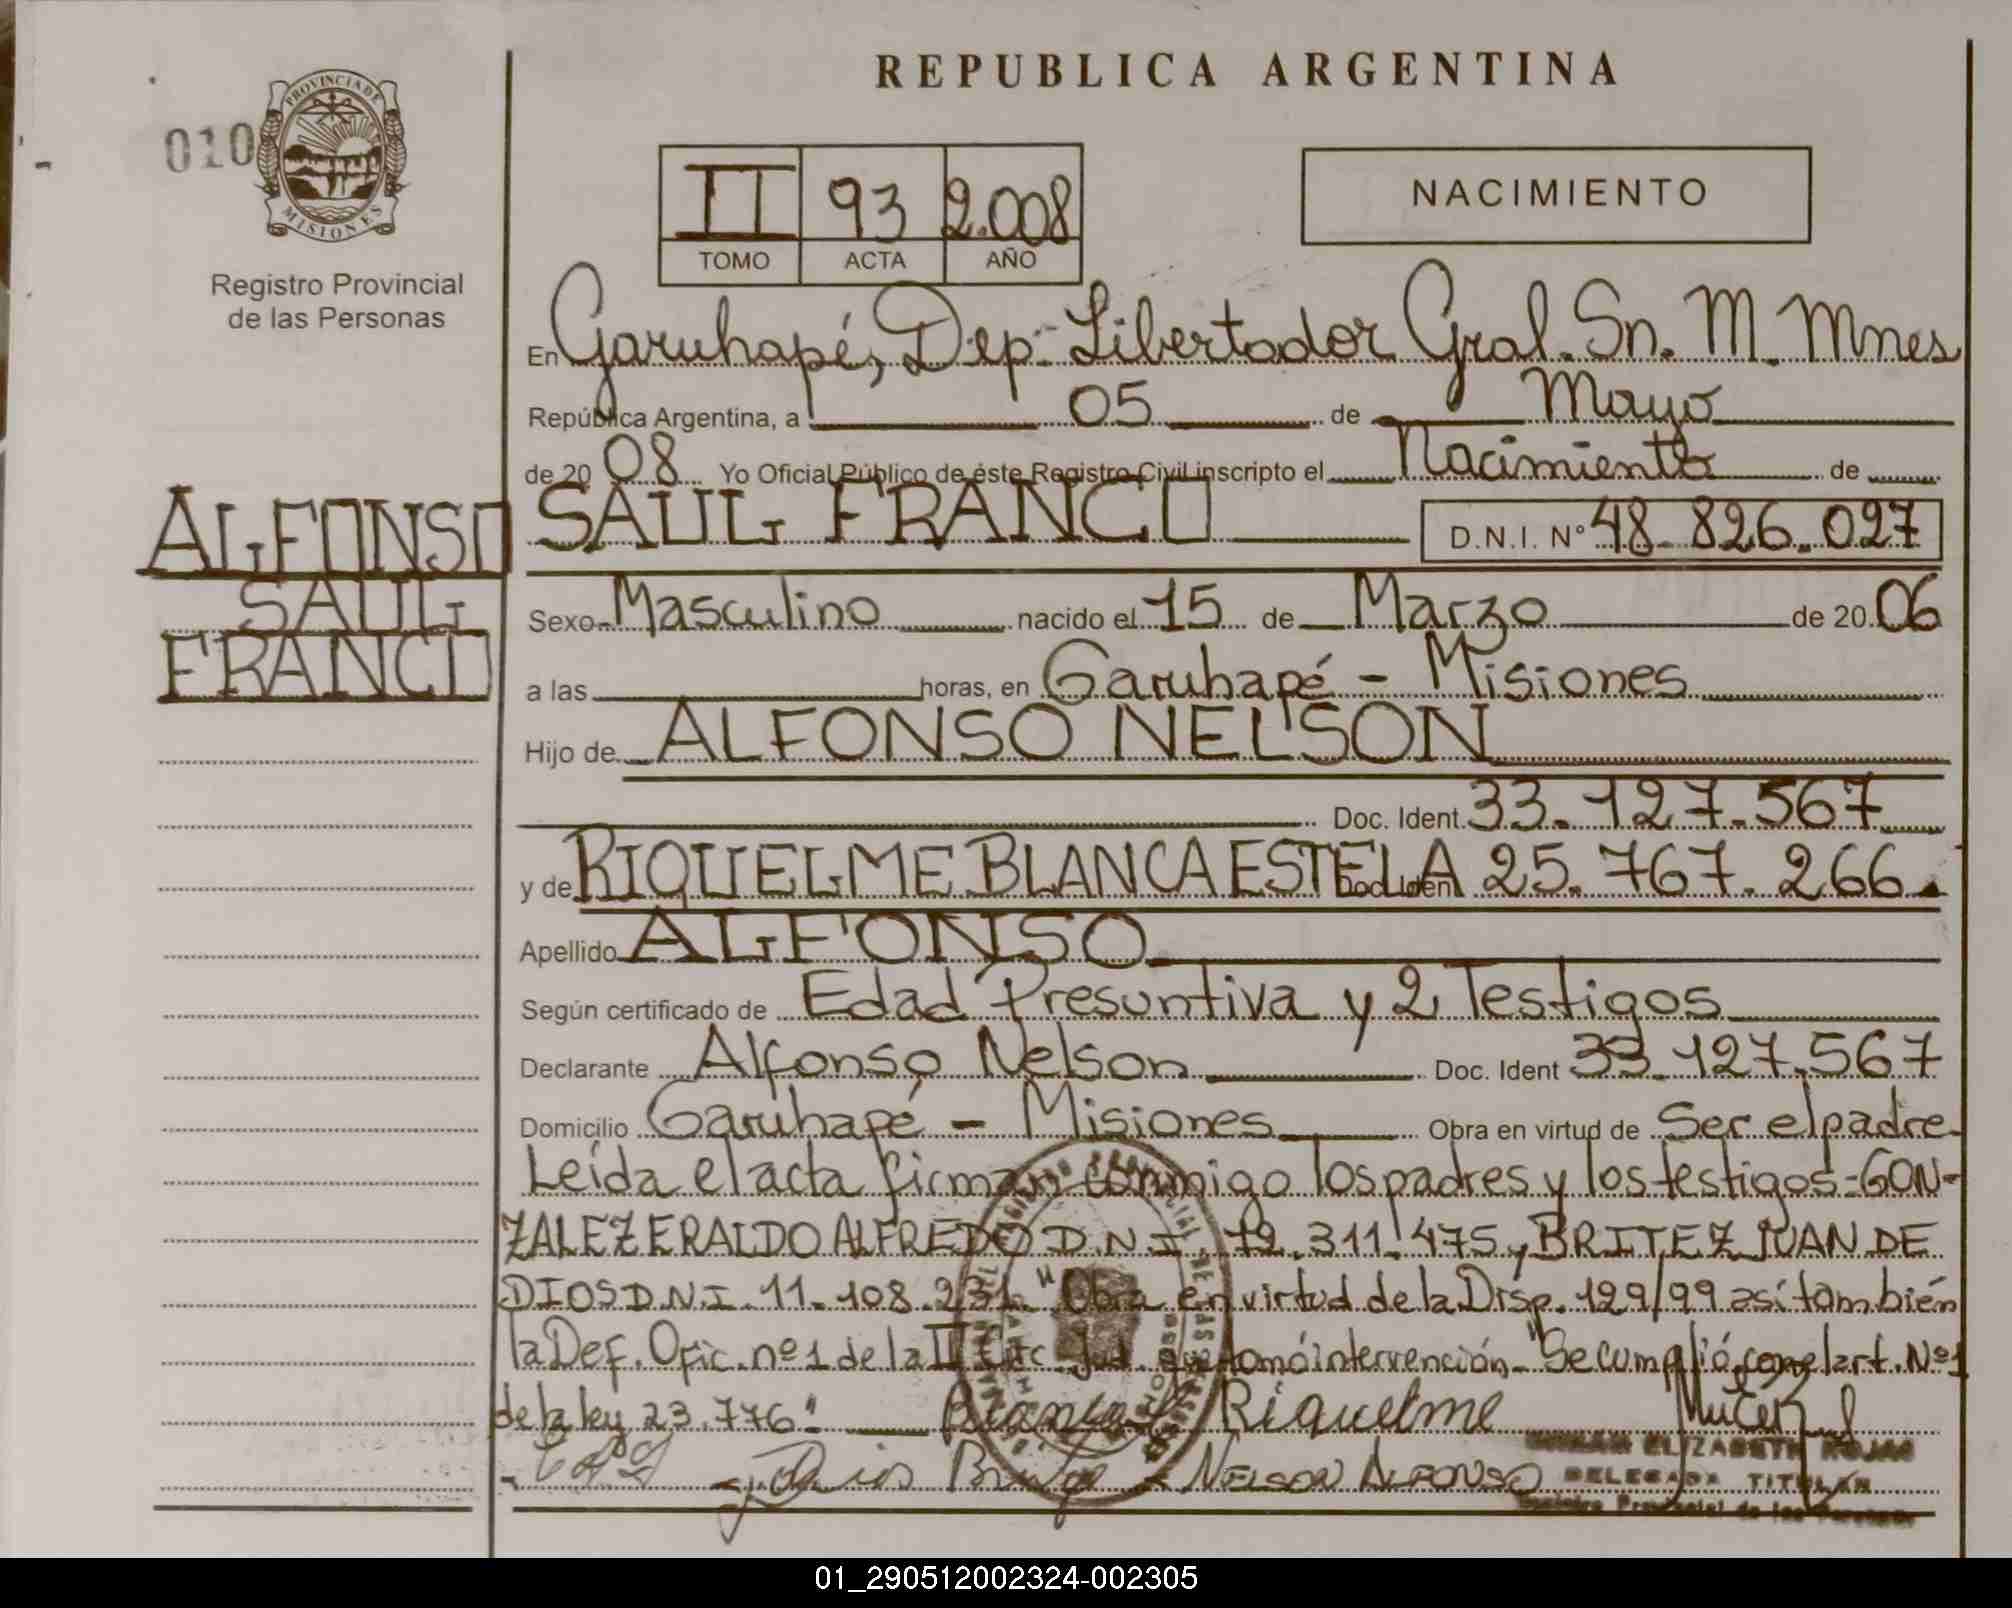 REPUBLICA ARGENTINA
010
PROVINCIA DE
MISIONES
Registro Provincial
de las Personas
II 93 2.008
TOMO ACTA AÑO
NACIMIENTO
En Garuhapé, Dep. Libertador Gral. Sn. M. Mnes
República Argentina, a 05 de Mayo
de 20 08 Yo Oficial Público de éste Registro Civil inscripto el Nacimiento de
ALFONSO
SAUL
FRANCO
SAUL FRANCO D.N.I. Nº 48.826.027
Sexo Masculino nacido el 15 de Marzo de 20 06
a las horas, en Garuhapé - Misiones
Hijo de ALFONSO NELSON
Doc. Ident. 33.127.567
y de RIQUELME BLANCA ESTELA Doc. Iden 25.767.266.
Apellido ALFONSO
Según certificado de Edad Presuntiva y 2 Testigos
Declarante Alfonso Nelson Doc. Ident 33.127.567
Domicilio Garuhapé - Misiones Obra en virtud de Ser el padre
Leída el acta firman conmigo los padres y los testigos: GON-
ZALEZ ERALDO ALFREDO D.N.I. 12.311.475, BRITEZ JUAN DE
DIOS D.N.I. 11.108.231. "Obra en virtud de la Disp. 129/99 así también
la Def. Ofic. nº 1 de la II Circ. Jud. que tomó intervención. "Se cumplió con el art. Nº 1
de la ley 23.776"
Blanca Riquelme
NELSON ALFONSO
MIRIAM ELIZABETH ROJAS
DELEGADA TITULAR
Registro Provincial de las Personas
01_290512002324-002305